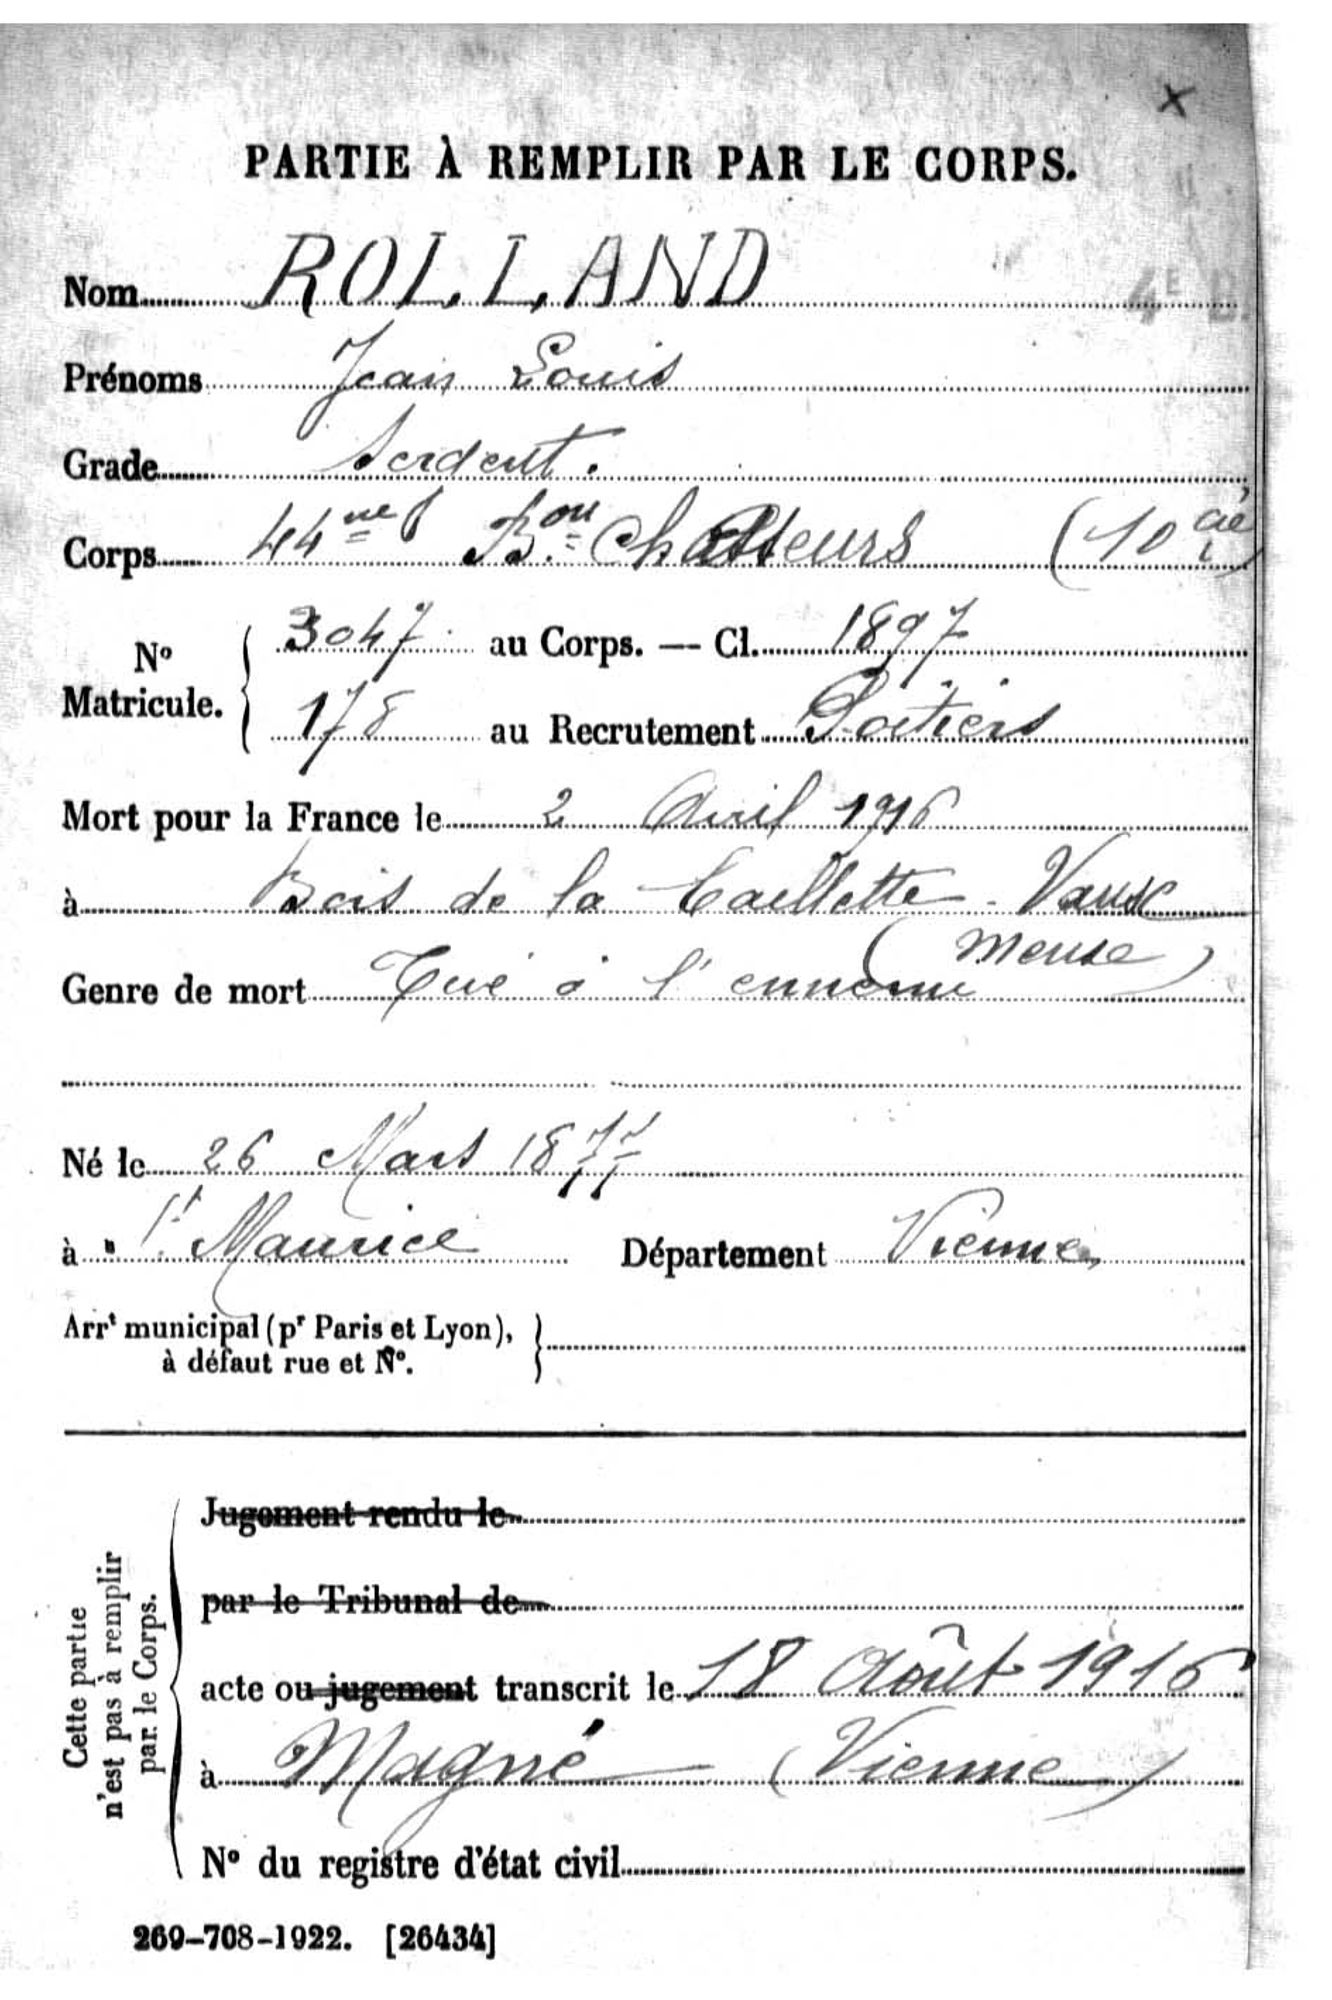 PARTIE À REMPLIR PAR LE CORPS.
4E B.
Nom ROLLAND
Prénoms Jean Louis
Grade Sergent.
Corps 44me Bon Chasseurs (10 cie)
No Matricule. { 3047 au Corps. — Cl. 1897
178 au Recrutement Poitiers
Mort pour la France le 2 Avril 1916
à Bois de la Caillette - Vaux
(Meuse)
Genre de mort Tué à l'ennemi
Né le 26 Mars 1877
à St. Maurice Département Vienne
Arrt municipal (pr Paris et Lyon),
à défaut rue et No.
Cette partie
n'est pas à remplir
par le Corps.
Jugement rendu le
par le Tribunal de
acte ou jugement transcrit le 18 Août 1916
à Magné (Vienne)
No du registre d'état civil
269-708-1922. [26434]